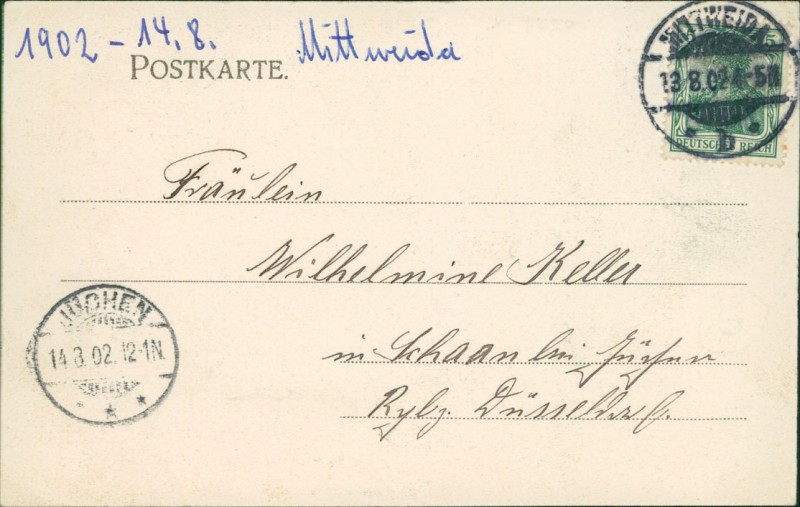 1902 - 14.8. Mittweida
POSTKARTE.
MITTWEIDA
13 8.02 4-5N
b
DEUTSCHES REICH
Fräulein
Wilhelmine Keller
in Schaan bei Jüchen
Rgbz. Düsseldorf.
JÜCHEN
14.8.02. 12-1N.